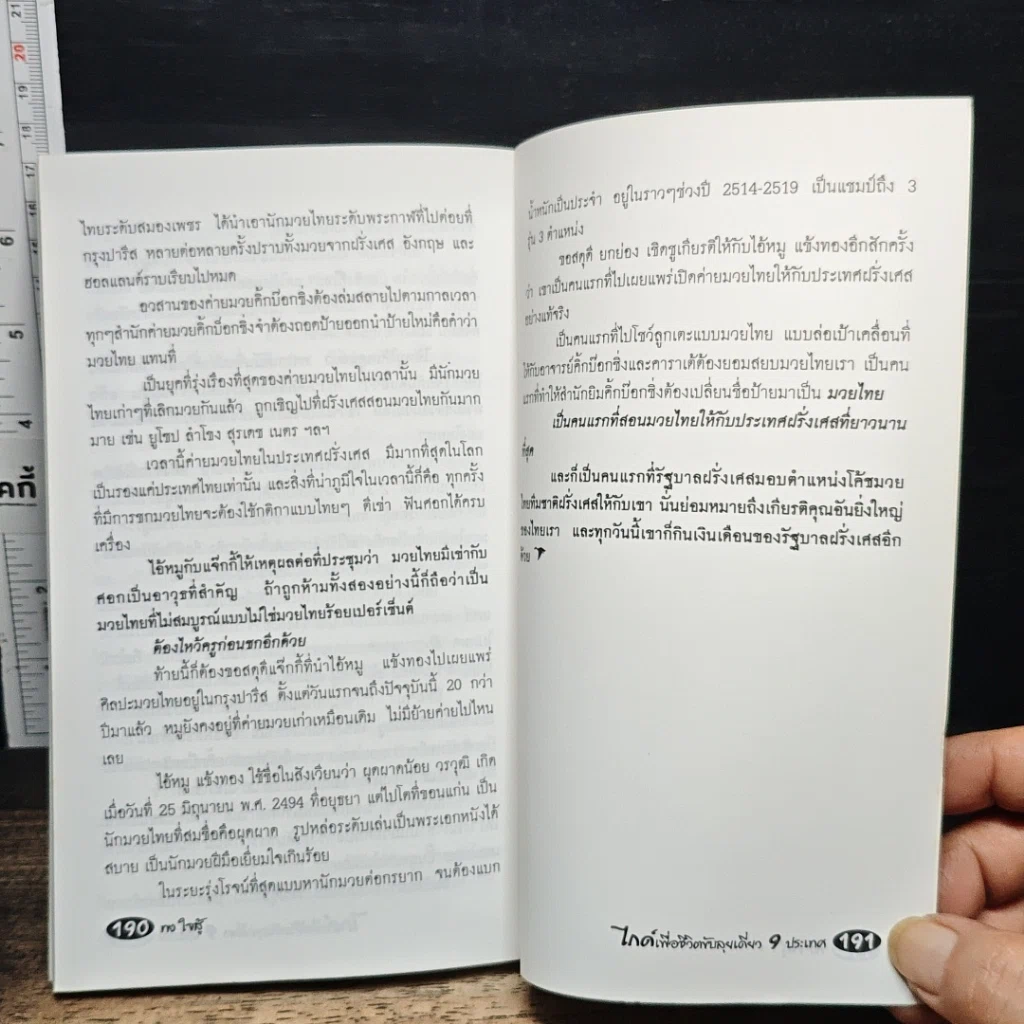 ไทยระดับสมองเพชร ได้นำเอานักมวยไทยระดับพระกาฬที่ไปต่อยที่
กรุงปารีส หลายต่อหลายครั้งปราบทั้งมวยจากฝรั่งเศส อังกฤษ และ
ฮอลแลนด์ราบเรียบไปหมด
อวสานของค่ายมวยคิ๊กบ๊อกซิ่งต้องล่มสลายไปตามกาลเวลา
ทุกๆสำนักค่ายมวยคิ๊กบ๊อกซิ่งจำต้องถอดป้ายออกนำป้ายใหม่คือคำว่า
มวยไทย แทนที่
เป็นยุคที่รุ่งเรืองที่สุดของค่ายมวยไทยในเวลานั้น มีนักมวย
ไทยเก่าๆที่เลิกมวยกันแล้ว ถูกเชิญไปที่ฝรั่งเศสสอนมวยไทยกันมาก
มาย เช่น ยูโซป ลำโขง สุรเดช เนตร ฯลฯ
เวลานี้ค่ายมวยไทยในประเทศฝรั่งเศส มีมากที่สุดในโลก
เป็นรองแค่ประเทศไทยเท่านั้น และสิ่งที่น่าภูมิใจในเวลานี้ก็คือ ทุกครั้ง
ที่มีการชกมวยไทยจะต้องใช้กติกาแบบไทยๆ ตีเข่า ฟันศอกได้ครบ
เครื่อง
ไอ้หมูกับแจ๊กกี้ให้เหตุผลต่อที่ประชุมว่า มวยไทยมีเข่ากับ
ศอกเป็นอาวุธที่สำคัญ ถ้าถูกห้ามทั้งสองอย่างนี้ก็ถือว่าเป็น
มวยไทยที่ไม่สมบูรณ์แบบไม่ใช่มวยไทยร้อยเปอร์เซ็นต์
ต้องไหว้ครูก่อนชกอีกด้วย
ท้ายนี้ก็ต้องขอสดุดีแจ๊กกี้ที่นำไอ้หมู แข้งทองไปเผยแพร่
ศิลปะมวยไทยอยู่ในกรุงปารีส ตั้งแต่วันแรกจนถึงปัจจุบันนี้ 20 กว่า
ปีมาแล้ว หมูยังคงอยู่ที่ค่ายมวยเก่าเหมือนเดิม ไม่มีย้ายค่ายไปไหน
เลย
ไอ้หมู แข้งทอง ใช้ชื่อในสังเวียนว่า ผุดผาดน้อย วรวุฒิ เกิด
เมื่อวันที่ 25 มิถุนายน พ.ศ. 2494 ที่อยุธยา แต่ไปโตที่ขอนแก่น เป็น
นักมวยไทยที่สมชื่อคือผุดผาด รูปหล่อระดับเล่นเป็นพระเอกหนังได้
สบาย เป็นนักมวยฝีมือเยี่ยมใจเกินร้อย
ในระยะรุ่งโรจน์ที่สุดแบบหานักมวยต่อกรยาก จนต้องแบก
190 กอ ใจสู้
น้ำหนักเป็นประจำ อยู่ในราวๆช่วงปี 2514-2519 เป็นแชมป์ถึง 3
รุ่น 3 ตำแหน่ง
ขอสดุดี ยกย่อง เชิดชูเกียรติให้กับไอ้หมู แข้งทองอีกสักครั้ง
ว่า เขาเป็นคนแรกที่ไปเผยแพร่เปิดค่ายมวยไทยให้กับประเทศฝรั่งเศส
อย่างแท้จริง
เป็นคนแรกที่ไปโชว์ลูกเตะแบบมวยไทย แบบล่อเป้าเคลื่อนที่
ให้กับอาจารย์คิ้กบ๊อกซิ่งและคาราเต้ต้องยอมสยบมวยไทยเรา เป็นคน
แรกที่ทำให้สำนักยิมคิ้กบ๊อกซิ่งต้องเปลี่ยนชื่อป้ายมาเป็น มวยไทย
เป็นคนแรกที่สอนมวยไทยให้กับประเทศฝรั่งเศสที่ยาวนาน
ที่สุด
และก็เป็นคนแรกที่รัฐบาลฝรั่งเศสมอบตำแหน่งโค้ชมวย
ไทยทีมชาติฝรั่งเศสให้กับเขา นั่นย่อมหมายถึงเกียรติคุณอันยิ่งใหญ่
ของไทยเรา และทุกวันนี้เขาก็กินเงินเดือนของรัฐบาลฝรั่งเศสอีก
ด้วย
ไกด์เพื่อชีวิตขับลุยเดี่ยว 9 ประเทศ 191